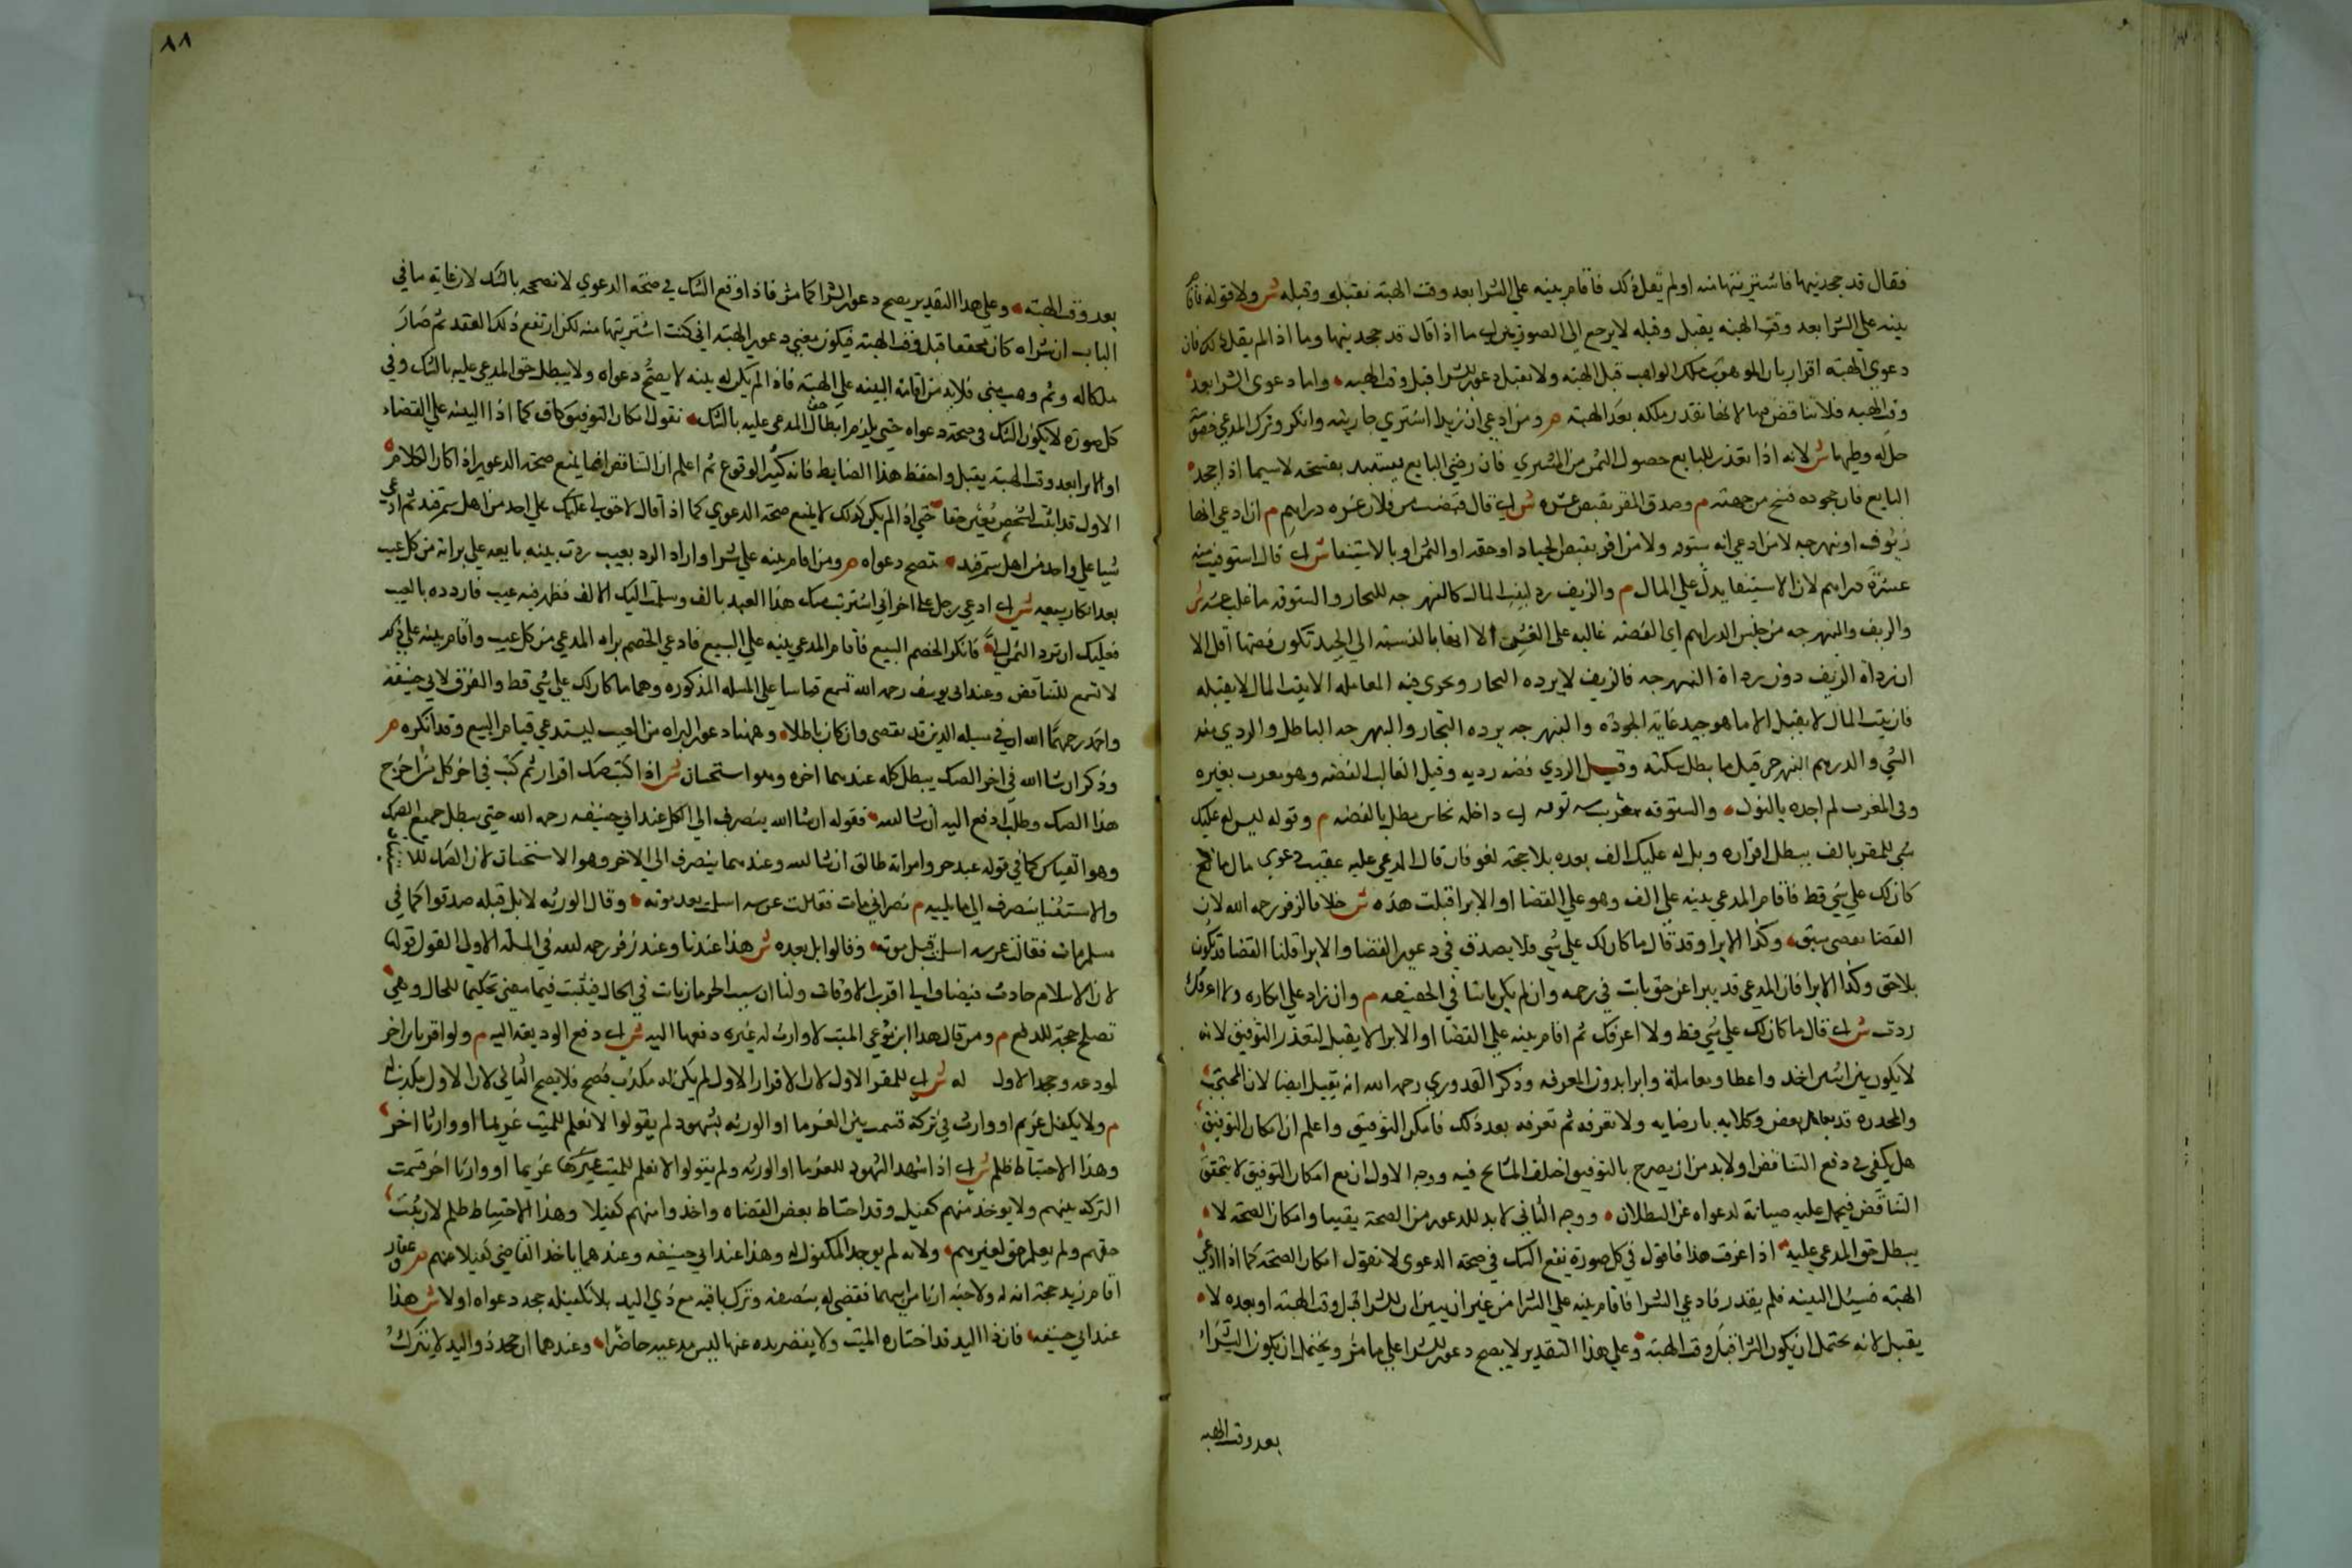 فقال قد جحدنيها فاشتريتها منه او لم يقل ذلك فاقام بينه علي الشرا بعد وقت الهبة تقبل وقبله ش ولا قوله فاقام
بينه علي الشرا بعد وقت الهبه يقبل وقبله لا يرجع الي الصورتين اي ما اذا قال قد جحدنيها وما اذا لم يقل ذلك فان
دعوي الهبة اقرار بان الموهوب ملك الواهب قبل الهبة ولا تقبل دعوي الشرا قبل وقت الهبه واما دعوي الشرا بعد
وقت الهبه فلا تناقض فيها لانها تقدر ملكه بعد الهبة م ومن ادعي ان زيدا اشتري جاريته وانكر وترك المدعي خصومته
حل له وطيها ش لانه اذا تعذر للبايع حصول الثمن من المشتري فات رضي البايع فيستبد بفسخه لاسيما اذا جحد
البايع فان جحوده فسخ من جهته م وصدق المقر بقبض عشره ش اي قال قبضت من فلان عشره دراهم م ان ادعي انها
زيوف او نبهرجه لا من ادعي انه ستوقه ولا من اقر بقبض الجياد او حقه او الثمن او بالاستيفا ش اي قال استوفيت منه
عشرة دراهم لان الاستيفا يدل علي المال م والزيف رد بيت المال كالنبهرجه للتجار والستوقه ما غلب غشه ش
والزيف والنبهرجه من جنس الدراهم اي الفضه غالبه علي الغش الا انها بالنسبة الي الجيد تكون فضتها اقل الا
ان رداة الزيف دون رداة النبهرجه فالزيف لا يرده التجار ويجري فيه المعامله الا بيت المال لا يقبله
فان بيت المال لا يقبل الا ما هو جيد غاية الجودة والنبهرجه يرده التجار والبهرجه الباطل والردي منه
الشي والدرهم النبهرجه قيل ما بطل سكته وقيل الردي فضه رديه وقيل الغالب الفضه وهو معرب بغيره
وفي المغرب لم اجده بالنون والستوقه معرب سه توه اي داخله نحاس مطلي بالفضه م وقوله ليس لي عليك
شي للمقر بالف يبطل اقراره وبل لي عليك الف بعده بلا حجة لغو فان قال المدعي عليه عقيب دعوي مال ما
كان لك علي شي قط فاقام المدعي بينه علي الف وهو علي القضا او الابرا قبلت هذه ش خلافا لزفر رحمه الله لان
القضا يقتضي سبق وكذا الابرا وقد قال ما كان لك علي شي فلا يصدق في دعوي القضا والابرا قلنا القضا قد يكون
بلا حق وكذا الابرا فان المدعي قد يبرا عن حق بات في زعمه وان لم يكن باتا في الحقيقه م وان زاد علي انكاره ولا اعرفك
ردت ش اي قال ما كان لك علي شي قط ولا اعرفك ثم اقام بينه علي القضا او الابرا لا يقبل لتعذر التوفيق لانه
لا يكون بين اثنين اخذ واعطا ومعاملة وابرا بدون المعرفه وذكر القدوري رحمه الله انه يقبل ايضا لان المحتجب
والمخدره قد يعامل بعض وكلايه بارضايه ولا تعرفه ثم تعرفه بعد ذلك فامكن التوفيق واعلم ان امكان التوفيق
هل يكفي في دفع التناقض او لا بد من ان يصرح بالتوفيق اختلف المشايخ فيه ووجه الاول ان مع امكان التوفيق لا يتحقق
التناقض فيحمل عليه صيانة لدعواه عن البطلان ووجه الثاني لا بد للدعوي من الصحة يقينا وامكان الصحة لا
يبطل حق المدعي عليه اذا عرفت هذا فاقول في كل صورة يقع الشك في صحة الدعوي لا نقول امكان الصحة كما اذا ادعي
الهبة فسئل البينه فلم يقدر فادعي الشرا فاقام بينه علي الشرا من غير ان يبين ان الشرا قبل وقت الهبة او بعده لا
يقبل لانه يحتمل ان يكون الشرا قبل وقت الهبة وعلي هذا التقدير لا يصح دعوي الشرا علي ما مر ويحتمل ان يكون الشرا
بعد وقت الهبه
٨٨
بعد وقت الهبة وعلي هذا التقدير يصح دعوي الشرا كما مر فاذا وقع الشك في صحة الدعوي لا نصححه بالشك لان غاية ما في
الباب ان شراه كان محققا قبل وقت الهبة فيكون معني دعوي الهبة اني كنت اشتريتها منه لكن ارتفع ذلك العقد ثم صار
ملكا له ثم وهب مني فلا بد من اقامة البينه علي الهبة فاذا لم يكن له بينه لا يصح دعواه ولا يبطل حق المدعي عليه بالشك وفي
كل صورة لا يكون الشك في صحة دعواه حتي يلزم ابطال حق المدعي عليه بالشك نقول امكان التوفيق كاف كما اذا البينه علي القضاء
او الابرا بعد وقت يقبل واحفظ هذا الضابط فانه كثير الوقوع ثم اعلم ان التناقض انما يمنع صحة الدعوي اذا كان الكلام
الاول قد اثبت لشخص معين حقا حتي اذا لم يكن كذلك لا يمنع صحة الدعوي كما اذا قال لا حق لي علي احد من اهل سمرقند ثم ادعي
شيا علي واحد من اهل سمرقند تصح دعواه م ومن اقام بينه علي شرا واراد الرد بعيب ردت بينه بايعه علي براته من كل عيب
بعد انكار بيعه ش اي ادعي رجل علي اخر اني اشتريت منك هذا العبد بالف وسلمت اليك الالف فظهر فيه عيب فاردده بالعيب
فعليك ان ترد الثمن الي فانكر الخصم البيع فاقام المدعي بينه علي البيع فادعي الخصم براه المدعي من كل عيب واقام بينه علي ذلك
لا تسمع للتناقض وعند ابي يوسف رحمه الله تسمع قياسا علي المسله المذكوره وهما ما كان لك علي شي قط والفرق لابي حنيفه
واحمد رحمهما الله ان في مسله الدين قد يقضي وان كان باطلا وههنا دعوي البراه من العيب يستدعي قيام البيع وقد انكره م
وذكر ان شا الله في اخر الصك يبطل كله عندهما اخره وهو استحسان ش اذا كتب صك اقرار ثم كتب في اخر كل من اخرج
هذا الصك وطلب ادفع اليه ان شا الله فقوله ان شا الله ينصرف الي الكل عند ابي حنيفه رحمه الله حتي يبطل جميع الصك
وهو القياس كما في قوله عبده حر وامراته طالق ان شا الله وعندهما ينصرف الي الاخر وهو الاستحسان لان الصك للاستيثاق
والاستثنا ينصرف الي ما يليه م نصراني مات فقالت عرسه اسلمت بعد موته وقال الورثه لا بل قبله صدقوا كما في
مسلم مات فقالت عرسه اسلمت قبل موته وقالوا بل بعده ش هذا عندنا وعند زفر رحمه الله في المسلة الاولي القول قولها
لان الاسلام حادث فيضاف الي اقرب الاوقات ولنا ان سبب الحرمان بات في الحال فيثبت فيما مضي تحكيما للحال وهي
تصلح حجة للدفع م ومن قال هذا ابن مودعي الميت لا وارث له غيره دفعها اليه ش اي دفع الوديعة اليه م ولو اقر بابن اخر
لمودعه وجحد الاول له ش اي للمقر الاول لان الاقرار الاول لم يكن له مكذب فصح فلا يصح الثاني لان الاول يكذبه
م ولا يكفل غريم او وارث في تركة قسمت بين الغرما او الورثه بشهود لم يقولوا لا نعلم للميت غريما او وارثا اخر
وهذا الاحتياط ظلم ش اي اذا شهد الشهود للغرما او الورثه ولم يقولوا لا نعلم للميت غريما او وارثا اخر قسمت
التركه بينهم ولا يوخذ منهم كفيل وقد احتاط بعض القضاه واخذوا منهم كفيلا وهذا الاحتياط ظلم لان ثبت
حقهم ولم يعلم حق لغيرهم ولانه لم يوجد المكفول له وهذا عند ابي حنيفه وعندهما ياخذ القاضي كفيلا منهم م عقار
اقام زيد حجة انه له ولاخيه ارثا من ابيهما فقضي له بنصفه وترك باقيه مع ذي اليد بلا تكفيله جحد دعواه اولا ش هذا
عند ابي حنيفه فان ذا اليد قد اختاره الميت ولا يقصر يده عنها ليس مدعيه حاضرا وعندهما ان جحد ذو اليد لا يترك